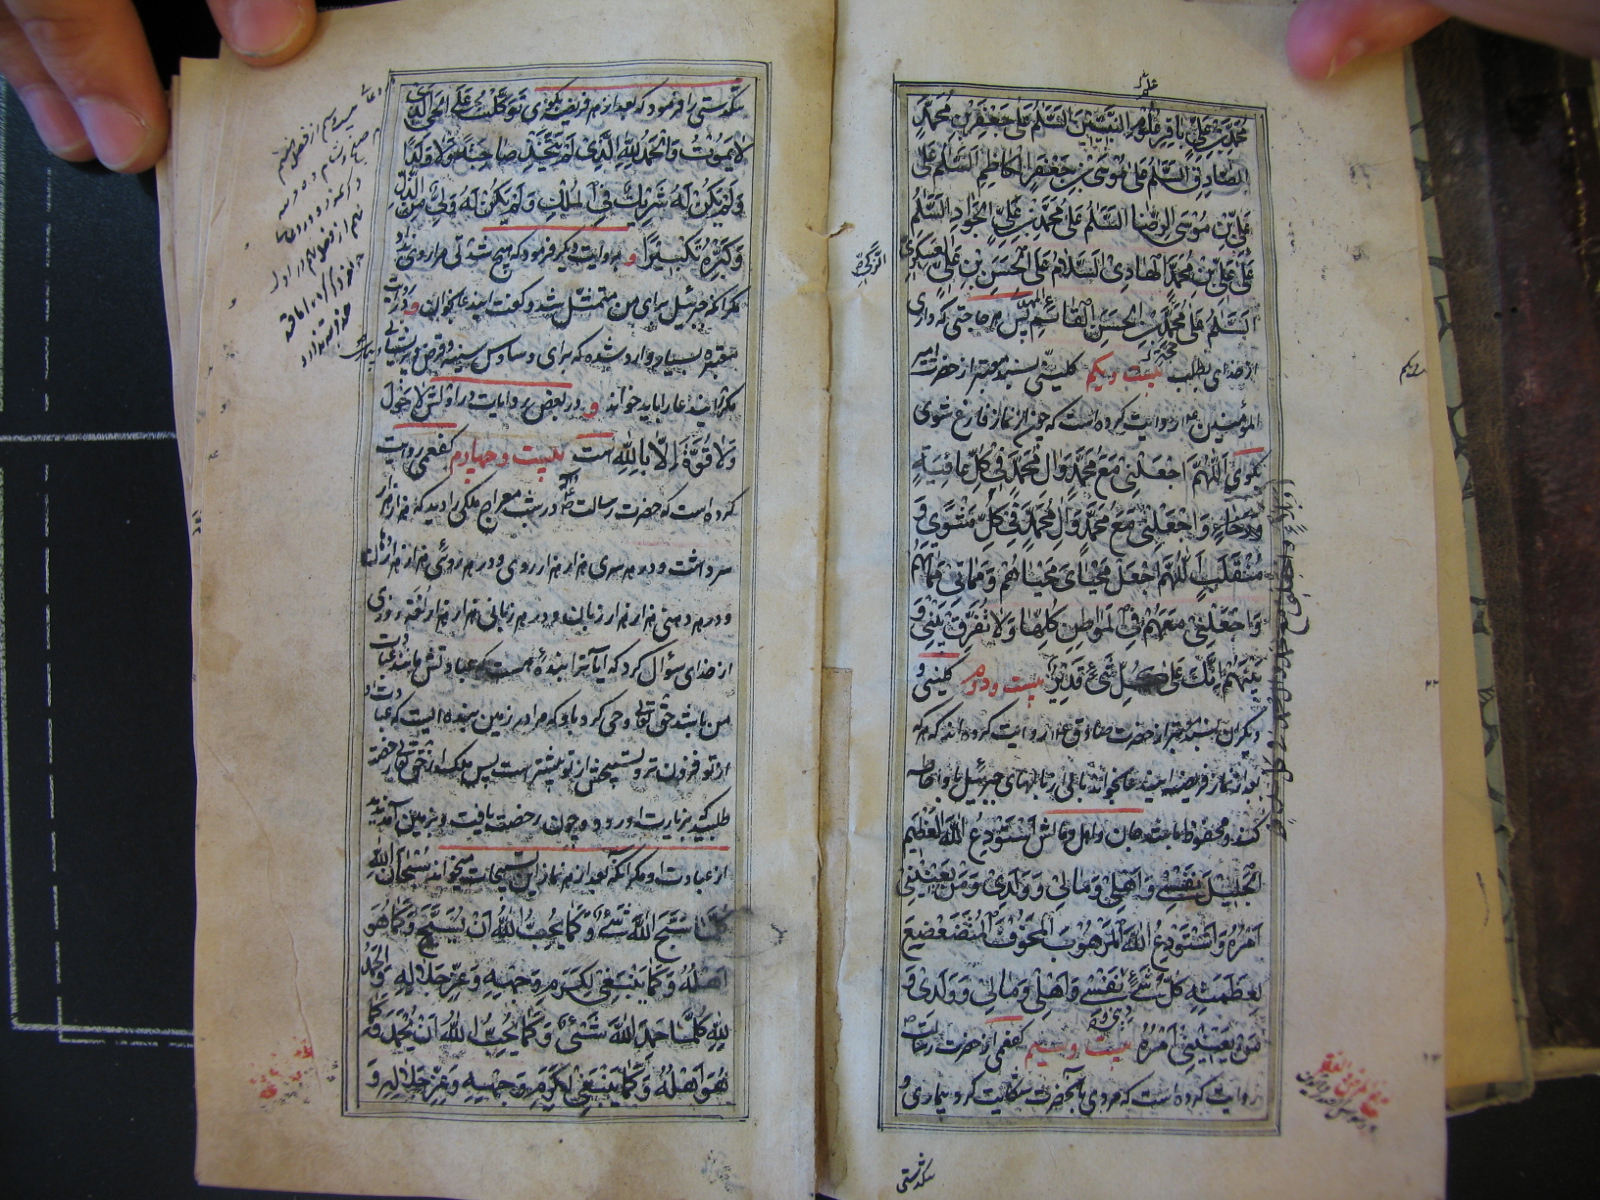 محمد بن علی باقر علوم النبیین السلم علی جعفر بن محمد
الصادق السلم علی موسی بن جعفر الکاظم السلم علی
علی بن موسی الرضا السلم علی محمد بن علی الجواد السلم
علی علی بن محمد الهادی السلام علی الحسن بن علی العسکری
الزکی
السلم علی محمد بن الحسن القائم المهدی پس هر حاجتی که داری
از خدای بطلب بیست و یکم کلینی بسند معتبر از حضرت امیر
المؤمنین روایت کرده است که چون از نماز فارغ شوی
بگوی اللهم اجعلنی مع محمد وال محمد فی کل عافیة
وبلاء واجعلنی مع محمد وال محمد فی کل مثوی و
منقلب اللهم اجعل محیای محیاهم ومماتی مماتهم
واجعلنی معهم فی المواطن کلها ولا تفرق بینی و
بینهم انک علی کل شیء قدیر بیست و دوم کلینی و
دیگران بسند معتبر از حضرت صادق روایت کرده اند که هر که
بعد از نماز فریضه این دعا بخواند بالهای جبرئیل او را احاطه
کند و محفوظ باشد جان و اهل و مالش استودع الله العظیم
الجلیل نفسی واهلی ومالی وولدی ومن یعنینی
امره واستودع الله المرهوب المخوف المتضعضع
لعظمته کل شیء نفسی واهلی ومالی وولدی و
من یعنینی امره بیست و سیم کفعمی از حضرت رسالت
روایت کرده است که مردی بآنحضرت شکایت کرد بیماری و
تنگدستی
تنگدستی را فرمود که بعد از هر فریضه بگوی توکلت علی الحی الذی
لا یموت والحمد لله الذی لم یتخذ صاحبة ولا ولدا
ولم یکن له شریک فی الملک ولم یکن له ولی من الذل
وکبره تکبیرا و بروایت دیگر فرمود که هیچ شدتی مرا روی نداد
مگر آنکه جبرئیل برای من متمثل شد و گفت این دعا بخوان و در روایات
معتبره بسیار وارد شده که برای وساوس سینه و قرض و پریشانی و بیماری
مکرر این دعا را باید خواند و در بعضی روایات در اولش لا حول
ولا قوة الا بالله است بیست و چهارم کفعمی روایت
کرده است که حضرت رسالت در شب معراج ملکی را دید که هزار هزار
سر داشت و در هر سری هزار هزار روی و در هر روئی هزار هزار دهان
و در هر دهنی هزار هزار زبان و در هر زبانی هزار هزار لغت روزی
از خدای سؤال کرد که آیا ترا بندهٔ هست که عبادتش مانند عبادت
من باشد حق تعالی وحی کرد باو که مرا در زمین بنده ایست که عبادت او
از تو فزون تر و تسبیحش از تو بیشتر است پس ملک از حق تعالی رخصت
طلبید بزیارت او رود و چون رخصت یافت و بزمین آمد ندید
از عبادت او مگر آنکه بعد از هر نماز این تسبیحات میخواند سبحان الله
کلما سبح الله شیء وکما یحب الله ان یسبح وکما هو
اهله وکما ینبغی لکرم وجهه وعز جلاله والحمد
لله کلما حمد الله شیء وکما یحب الله ان یحمد وکما
هو اهله وکما ینبغی لکرم وجهه وعز جلاله و